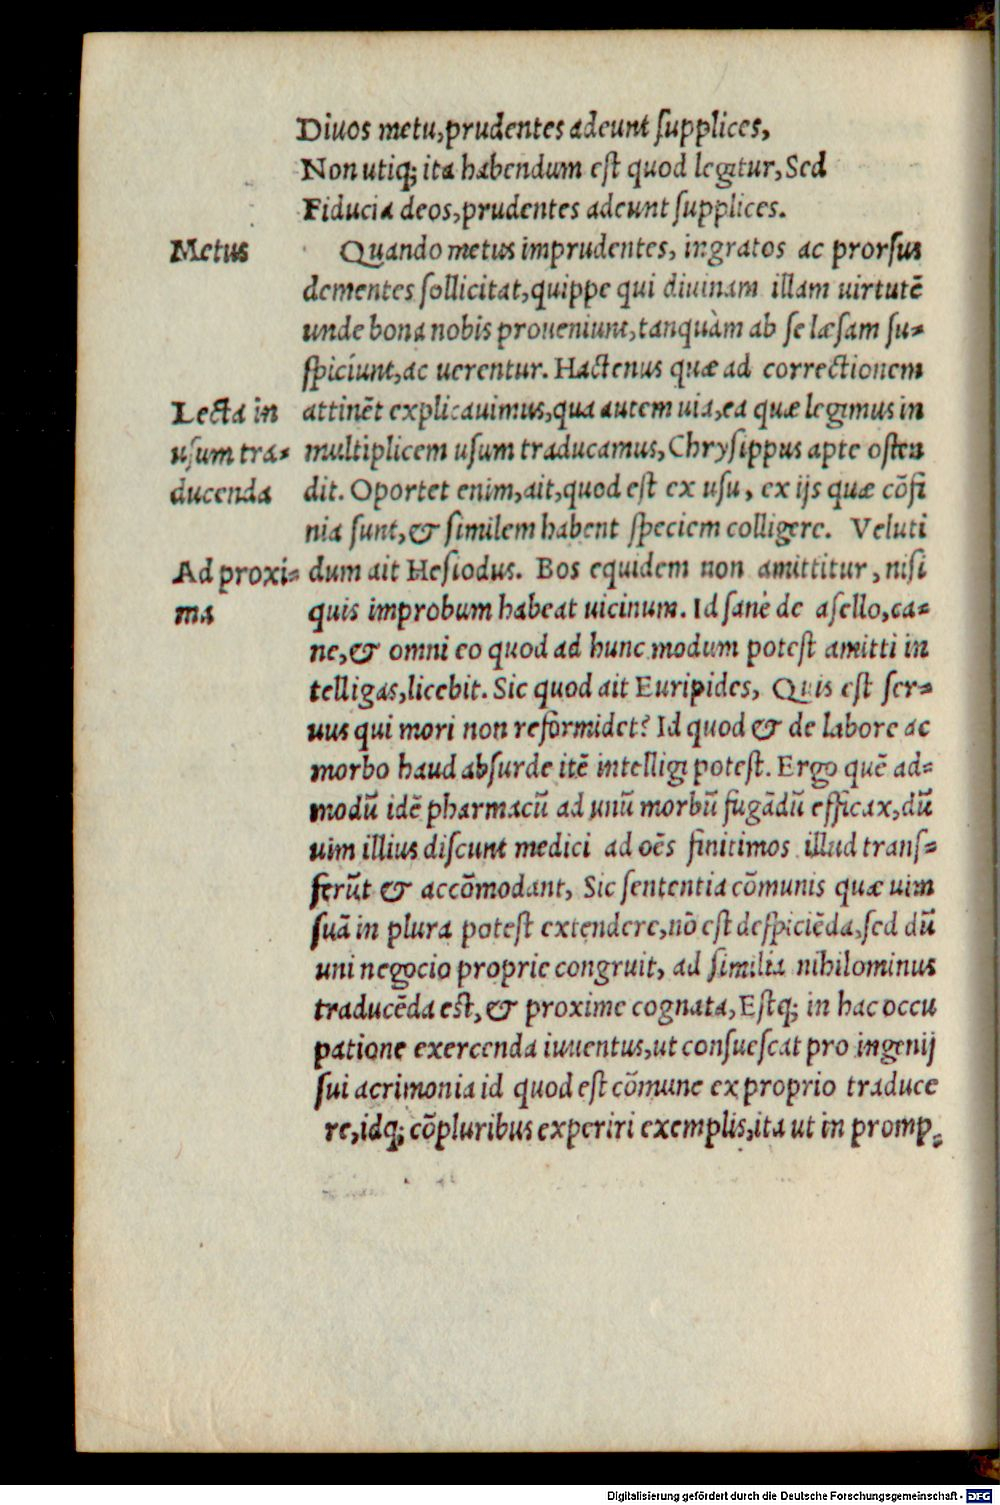 Diuos metu,prudentes adeunt ſupplices,
Non utiq; ita habendum eſt quod legitur, Sed
Fiducia deos,prudentes adeunt ſupplices.
Metus
Quando metus imprudentes, ingratos ac prorſus
dementes ſollicitat,quippe qui diuinam illam uirtutē
unde bona nobis proueniunt,tanquàm ab ſe læſam ſu⸗
ſpiciunt,ac uerentur. Hactenus quæ ad correctionem
Lecta in
uſum tra⸗
ducenda
attinēt explicauimus,qua autem uia,ea quæ legimus in
multiplicem uſum traducamus, Chryſippus apte oſten
dit. Oportet enim,ait,quod eſt ex uſu, ex ijs quæ cōfi
nia ſunt,& ſimilem habent ſpeciem colligere. Veluti
Ad proxi⸗
ma
dum ait Heſiodus. Bos equidem non amittitur, niſi
quis improbum habeat uicinum. Id ſanè de aſello,ca⸗
ne,& omni eo quod ad hunc modum poteſt amitti in
telligas,licebit. Sic quod ait Euripides, Quis eſt ſer⸗
uus qui mori non reformidet? Id quod & de labore ac
morbo haud abſurde itē intelligi poteſt. Ergo quē ad⸗
modū idē pharmacū ad unū morbū fugādū efficax,dū
uim illius diſcunt medici ad oēs finitimos illud tranſ⸗
ferūt & accōmodant, Sic ſententia cōmunis quæ uim
ſuā in plura poteſt extendere,nō eſt deſpiciēda,ſed dū
uni negocio proprie congruit, ad ſimilia nihilominus
traducēda eſt,& proxime cognata, Eſtq; in hac occu
patione exercenda iuuentus,ut conſueſcat pro ingenij
ſui acrimonia id quod eſt cōmune ex proprio traduce
re,idq; cōpluribus experiri exemplis,ita ut in promp⸗
Digitalisierung gefördert durch die Deutsche Forschungsgemeinschaft - DFG